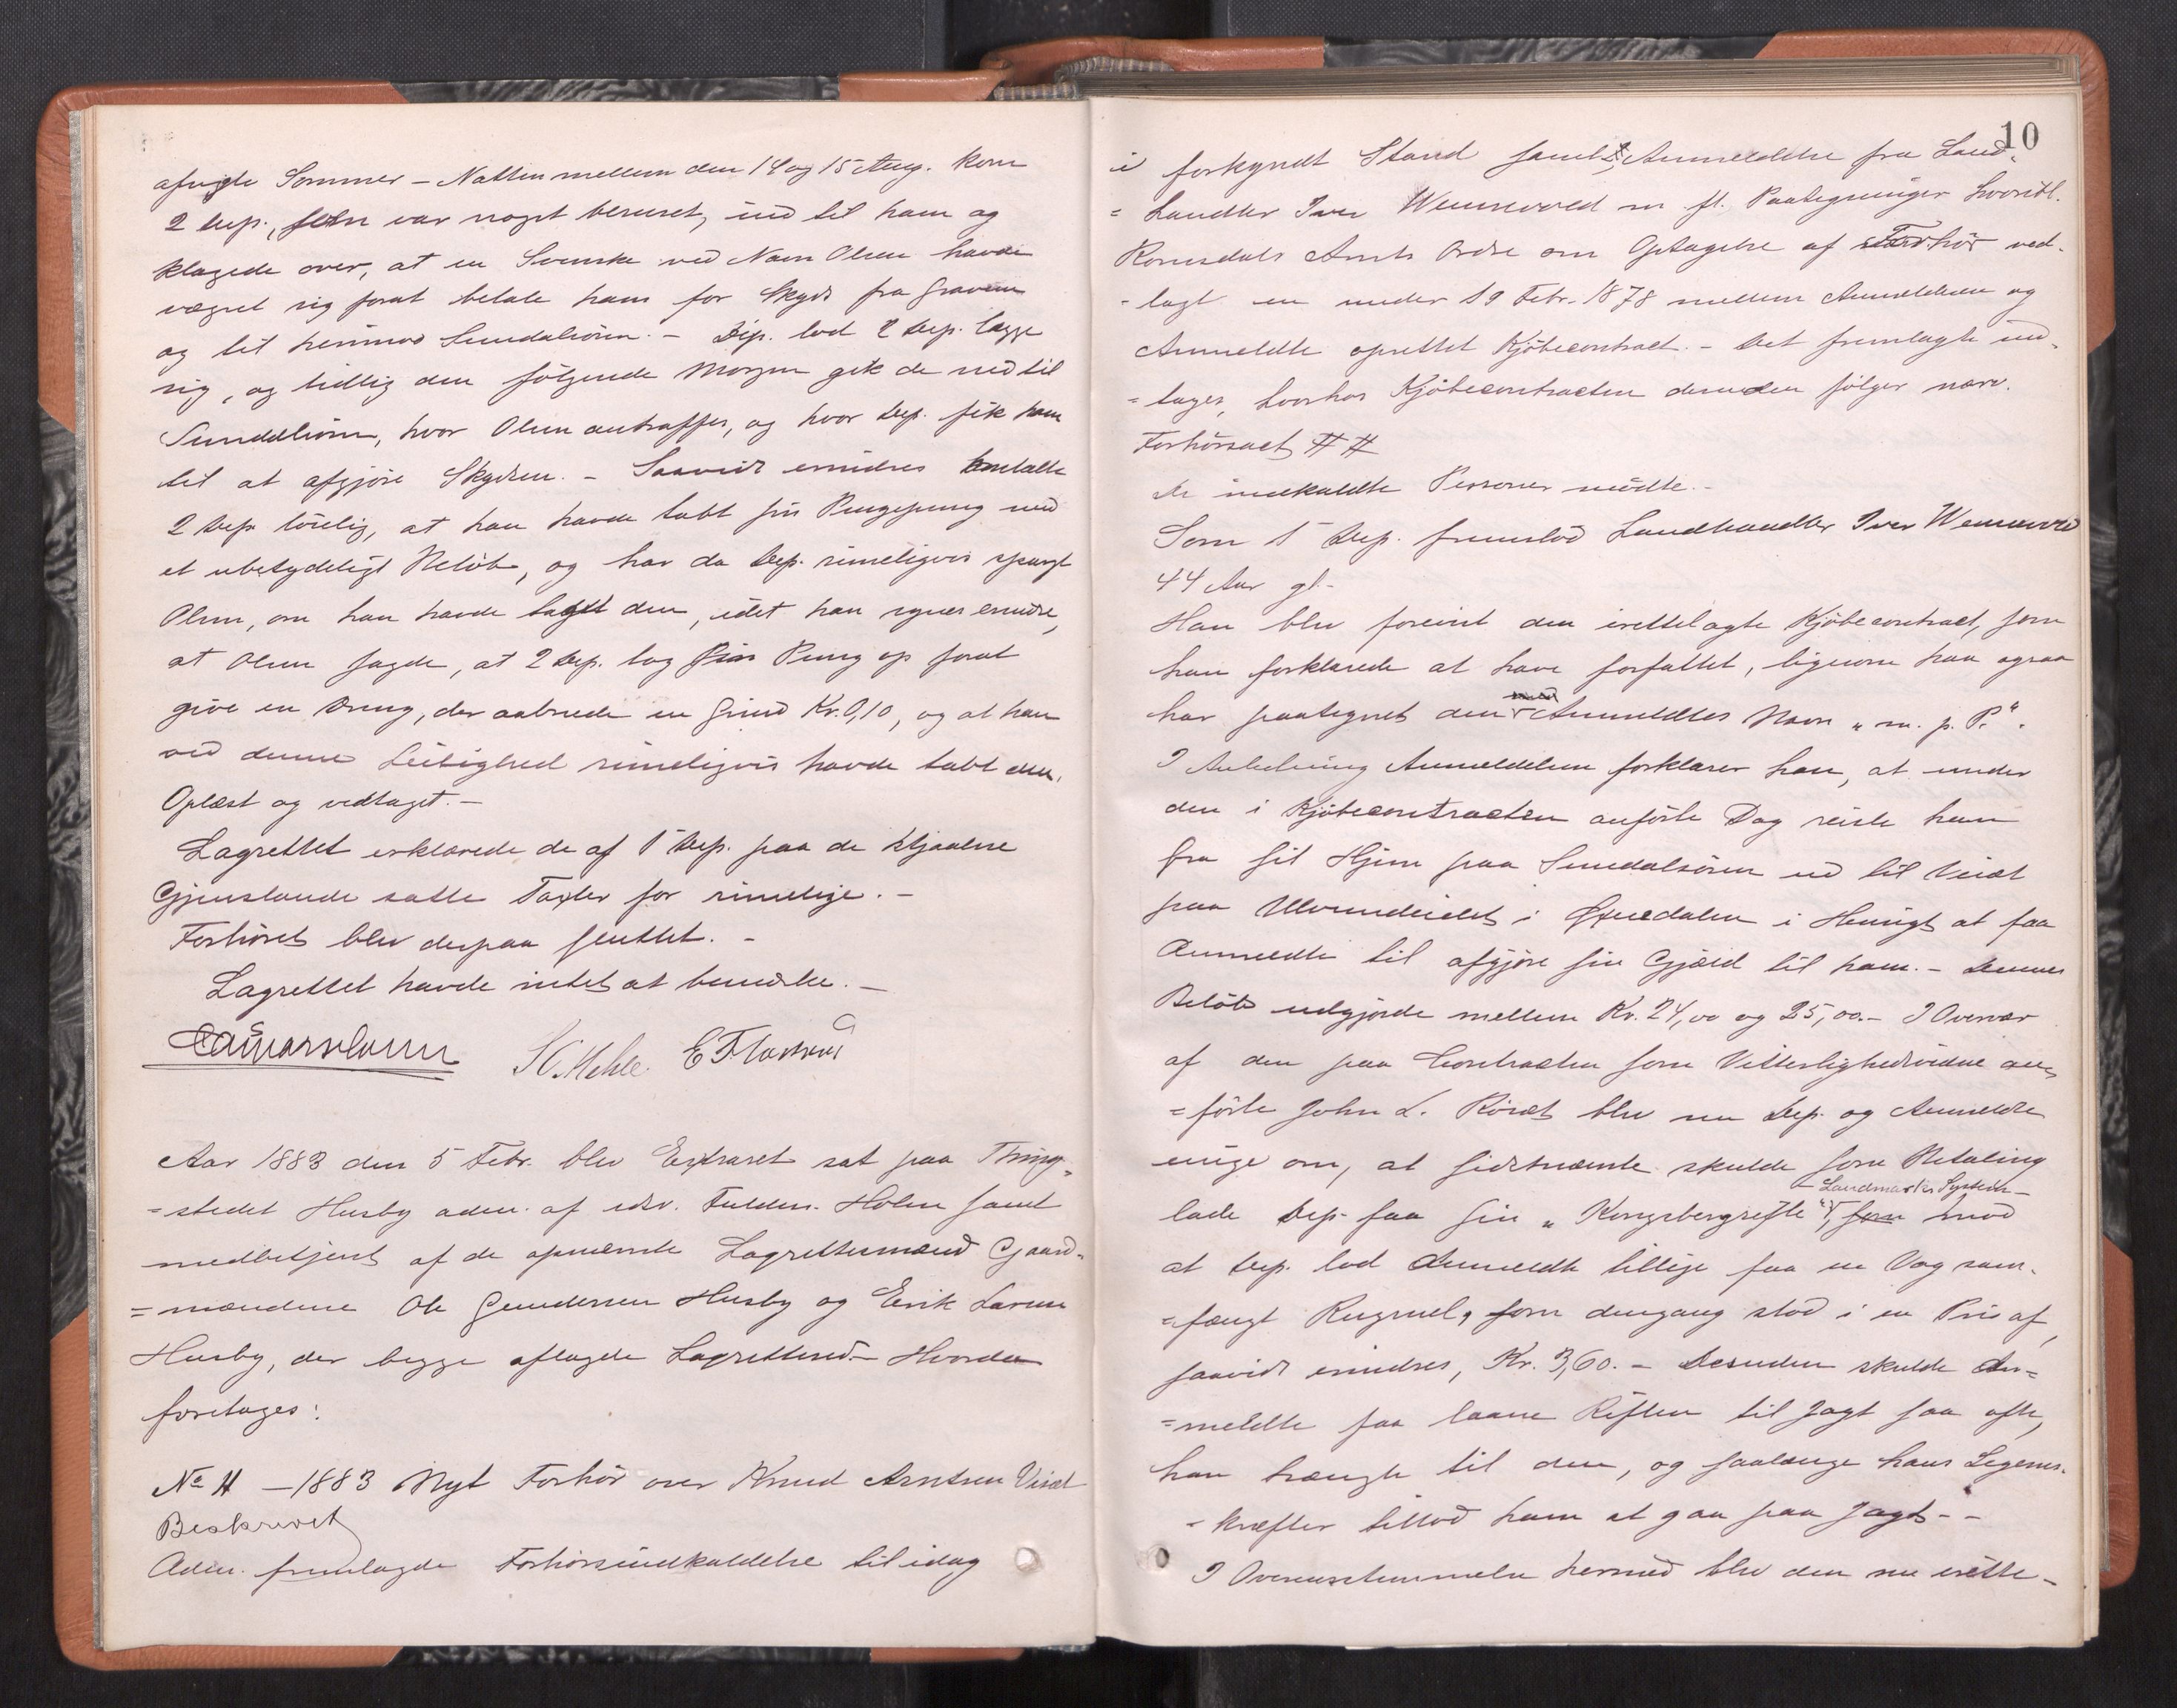 afvigte Sommer – Natten mellem den 14 og 15 Aug. kom
2 Dep., som var noget beruset, ind til ham og
klagede over, at en Svenske ved Navn Olsen havde
vægret sig forat betale ham for Skyds fra Gravem
og til henimod Sundalsören. – Dep. lod 2 Dep. lægge
sig, og tidlig den fölgende Morgen gik de ned til
Sunddlören, hvor Olsen antraffes, og hvor Dep. fik ham
til at afgjöre Skydsen. – Saavidt erindres omtalte
2 Dep. löselig, at han havde tabt sin Pengepung med
et ubetydeligt Belöb, og har da Dep. rimeligvis spurgt
Olsen, om han havde taget den, idet han synes erindre,
at Olsen sagde, at 2 Dep. tog sin Pung op forat
give en Dreng, der aabnede en Grind Kr. 0,10, og at han
ved denne Leilighed rimeligvis havde tabt den.
Oplæst og vedtaget. –
Lagrettet erklærede de af 1 Dep. paa de stjaalne
Gjenstande satte Taxter for rimelige. –
Forhöret blev derpaa sluttet. –
Lagrettet havde intet at bemærke. –
Aar 1883 den 5 Febr. blev Extraret sat paa Thing-
=stedet Husby adm. af edsv. Fuldm. Holm samt
medbetjent af de opnævnte Lagrettesmænd Gaard-
=mændene Ole Gundersen Husby og Erik Larsen
Husby, der begge aflagde Lagretteed. – Hvorda
foretages:
No 4 – 1883 Nyt Forhör over Knud Arntsen Viset
Beskrevet
Adm. fremlagde Forhörsindkaldelse til idag
10
i forkyndt Stand samt Anmeldelse fra Land-
=handler Iver Wennevold m fl. Paategninger hvoribl.
Romsdals Amts Ordre om Optagelse af Forhör ved-
=lagt en under 19 Febr. 1878 mellem Anmelderen og
Anmeldte oprettet Kjöbecontract. – Det fremlagte ind-
=tages, hvorhos Kjöbecontracten desuden fölger nærv.
Forhörsact # #
De indkaldte Personer mödte. –
Som 1 Dep. fremstod Landhandler Iver Wennevold
44 Aar gl. –
Han blev forevist den irettelagte Kjöbecontract, som
han forklarede at have forfattet, ligesom han ogsaa
har paategnet den med Anmeldtes Navn „m. p. P.“.
I Anledning Anmeldelsen forklarer han, at under
den i Kjöbecontracten anförte Dag reiste han
fra sit Hjem paa Sundalsören ud til
paa i Öxendalen i Hensigt at faa
Anmeldte til afgjöre sin Gjæld til ham. – Dennes
Belöb udgjorde mellem Kr. 24,00 og 25,00. – I Overvær
af den paa Contracten som Vitterlighedsvidne an-
=förte John L. blev nu Dep. og Anmeldte
enige om, at sidstnævnte skulde som Betaling
Landmarks System –
lade Dep. faa sin „Kongsbergrifle“, som mod
at Dep. lod Anmeldte tillige faa en Vog sam-
=fængt Rugmel, som dengang stod i en Pris af,
saavidt erindres, Kr. 3,60. – Desuden skulde An-
=meldte faa laane Riflen til Jagt saa ofte,
han trængte til den, og saalænge hans Legems-
=kræfter tillod ham at gaa paa Jagt. –
I Overensstemmelse hermed blev den nu irette-